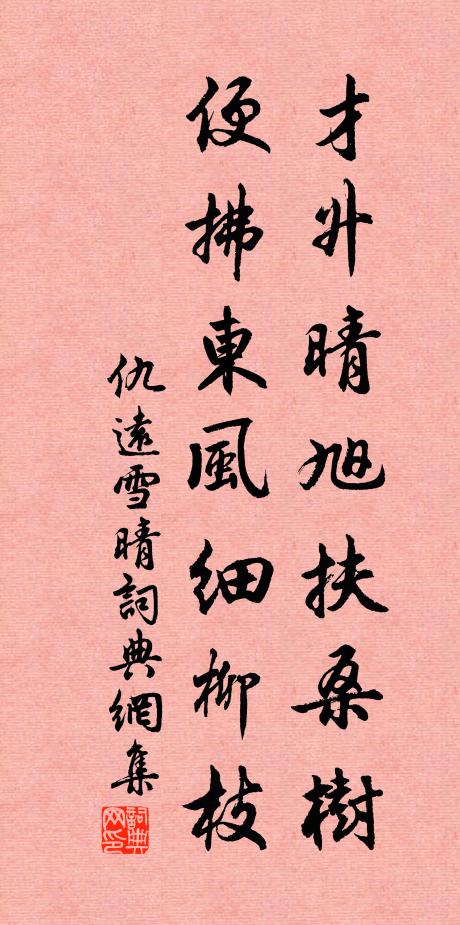 才升晴旭扶桑樹
便拂東風細柳枝
仇遠雪晴詞典網集
詞典网印